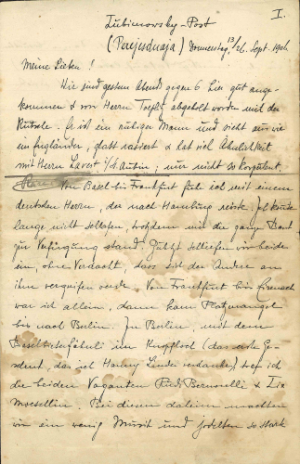 I.
Lubimowsky-Post
(Perejesdnaja) Donnerstag, 13/26. Sept. 1906
Meine Lieben!
Wir sind gestern Abend gegen 6 Uhr gut ange-
kommen & von Herrn abgeholt worden mit der
Kutsche. Er ist ein ruhiger Mann und sieht aus wie
ein Engländer, glatt rasiert & hat viel Ähnlichkeit
mit Herrn nur nicht so korpulent.
Von Basel bis Frankfurt fuhr ich mit einem
deutschen Herrn, der nach Hamburg reiste. Ich konnte
lange nicht schlafen, trotzdem mir die ganze Bank
zur Verfügung stand. schliefen wir beiden
ein, ohne Verdacht, dass sich der Andere an
ihm vergreifen werde. Von Frankfurt bis Eisenach
war ich allein, dann kam Platzmangel
bis nach Berlin. In Berlin, mit dem
im Knopfloch (das erste
das ich verdanke) traf ich
die beiden Vaganten Bernoulli &
Bei diesem daheim machten
wir ein wenig Musik und so stark